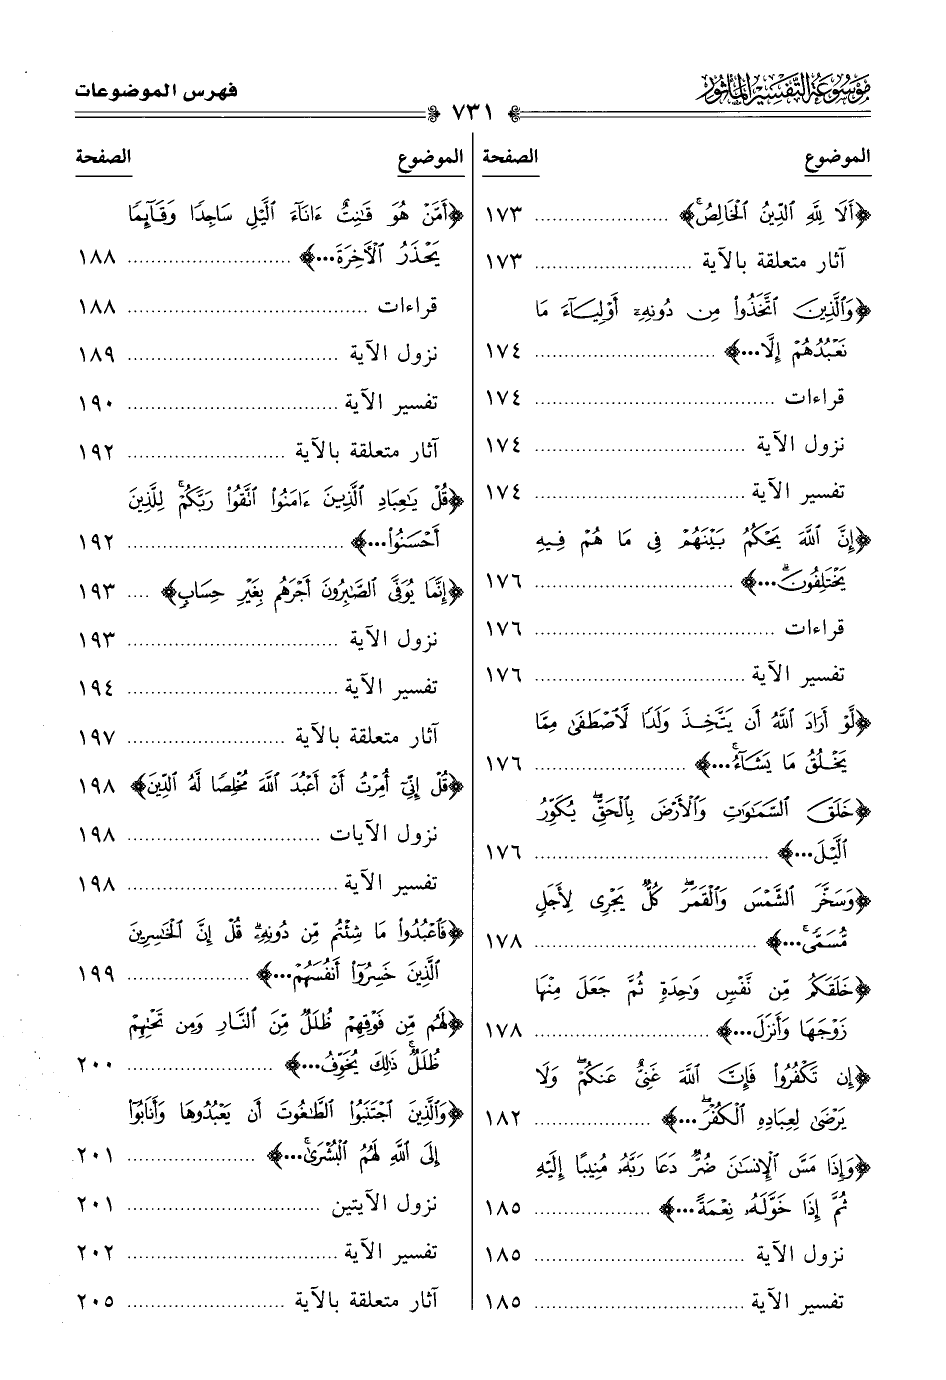 موسوعة التفسير المأثور
فهرس الموضوعات
٧٣١
الموضوع الصفحة
﴿أَلَا لِلَّهِ الدِّينُ الْخَالِصُ﴾ ........ ١٧٣
آثار متعلقة بالآية ........ ١٧٣
﴿وَالَّذِينَ اتَّخَذُوا مِن دُونِهِ أَوْلِيَاءَ مَا
نَعْبُدُهُمْ إِلَّا...﴾ ........ ١٧٤
قراءات ........ ١٧٤
نزول الآية ........ ١٧٤
تفسير الآية ........ ١٧٤
﴿إِنَّ اللَّهَ يَحْكُمُ بَيْنَهُمْ فِي مَا هُمْ فِيهِ
يَخْتَلِفُونَ...﴾ ........ ١٧٦
قراءات ........ ١٧٦
تفسير الآية ........ ١٧٦
﴿لَّوْ أَرَادَ اللَّهُ أَن يَتَّخِذَ وَلَدًا لَّاصْطَفَى مِمَّا
يَخْلُقُ مَا يَشَاءُ...﴾ ........ ١٧٦
﴿خَلَقَ السَّمَاوَاتِ وَالْأَرْضَ بِالْحَقِّ يُكَوِّرُ
اللَّيْلَ...﴾ ........ ١٧٦
﴿وَسَخَّرَ الشَّمْسَ وَالْقَمَرَ كُلٌّ يَجْرِي لِأَجَلٍ
مُّسَمًّى...﴾ ........ ١٧٨
﴿خَلَقَكُم مِّن نَّفْسٍ وَاحِدَةٍ ثُمَّ جَعَلَ مِنْهَا
زَوْجَهَا وَأَنزَلَ...﴾ ........ ١٧٨
﴿إِن تَكْفُرُوا فَإِنَّ اللَّهَ غَنِيٌّ عَنكُمْ وَلَا
يَرْضَى لِعِبَادِهِ الْكُفْرَ...﴾ ........ ١٨٢
﴿وَإِذَا مَسَّ الْإِنسَانَ ضُرٌّ دَعَا رَبَّهُ مُنِيبًا إِلَيْهِ
ثُمَّ إِذَا خَوَّلَهُ نِعْمَةً...﴾ ........ ١٨٥
نزول الآية ........ ١٨٥
تفسير الآية ........ ١٨٥
الموضوع الصفحة
﴿أَمَّنْ هُوَ قَانِتٌ آنَاءَ اللَّيْلِ سَاجِدًا وَقَائِمًا
يَحْذَرُ الْآخِرَةَ...﴾ ........ ١٨٨
قراءات ........ ١٨٨
نزول الآية ........ ١٨٩
تفسير الآية ........ ١٩٠
آثار متعلقة بالآية ........ ١٩٢
﴿قُلْ يَاعِبَادِ الَّذِينَ آمَنُوا اتَّقُوا رَبَّكُمْ لِلَّذِينَ
أَحْسَنُوا...﴾ ........ ١٩٢
﴿إِنَّمَا يُوَفَّى الصَّابِرُونَ أَجْرَهُم بِغَيْرِ حِسَابٍ﴾ .... ١٩٣
نزول الآية ........ ١٩٣
تفسير الآية ........ ١٩٤
آثار متعلقة بالآية ........ ١٩٧
﴿قُلْ إِنِّي أُمِرْتُ أَنْ أَعْبُدَ اللَّهَ مُخْلِصًا لَّهُ الدِّينَ﴾ ١٩٨
نزول الآيات ........ ١٩٨
تفسير الآية ........ ١٩٨
﴿فَاعْبُدُوا مَا شِئْتُم مِّن دُونِهِ قُلْ إِنَّ الْخَاسِرِينَ
الَّذِينَ خَسِرُوا أَنفُسَهُمْ...﴾ ........ ١٩٩
﴿لَهُم مِّن فَوْقِهِمْ ظُلَلٌ مِّنَ النَّارِ وَمِن تَحْتِهِمْ
ظُلَلٌ ذَلِكَ يُخَوِّفُ...﴾ ........ ٢٠٠
﴿وَالَّذِينَ اجْتَنَبُوا الطَّاغُوتَ أَن يَعْبُدُوهَا وَأَنَابُوا
إِلَى اللَّهِ لَهُمُ الْبُشْرَى...﴾ ........ ٢٠١
نزول الآيتين ........ ٢٠١
تفسير الآية ........ ٢٠٢
آثار متعلقة بالآية ........ ٢٠٥